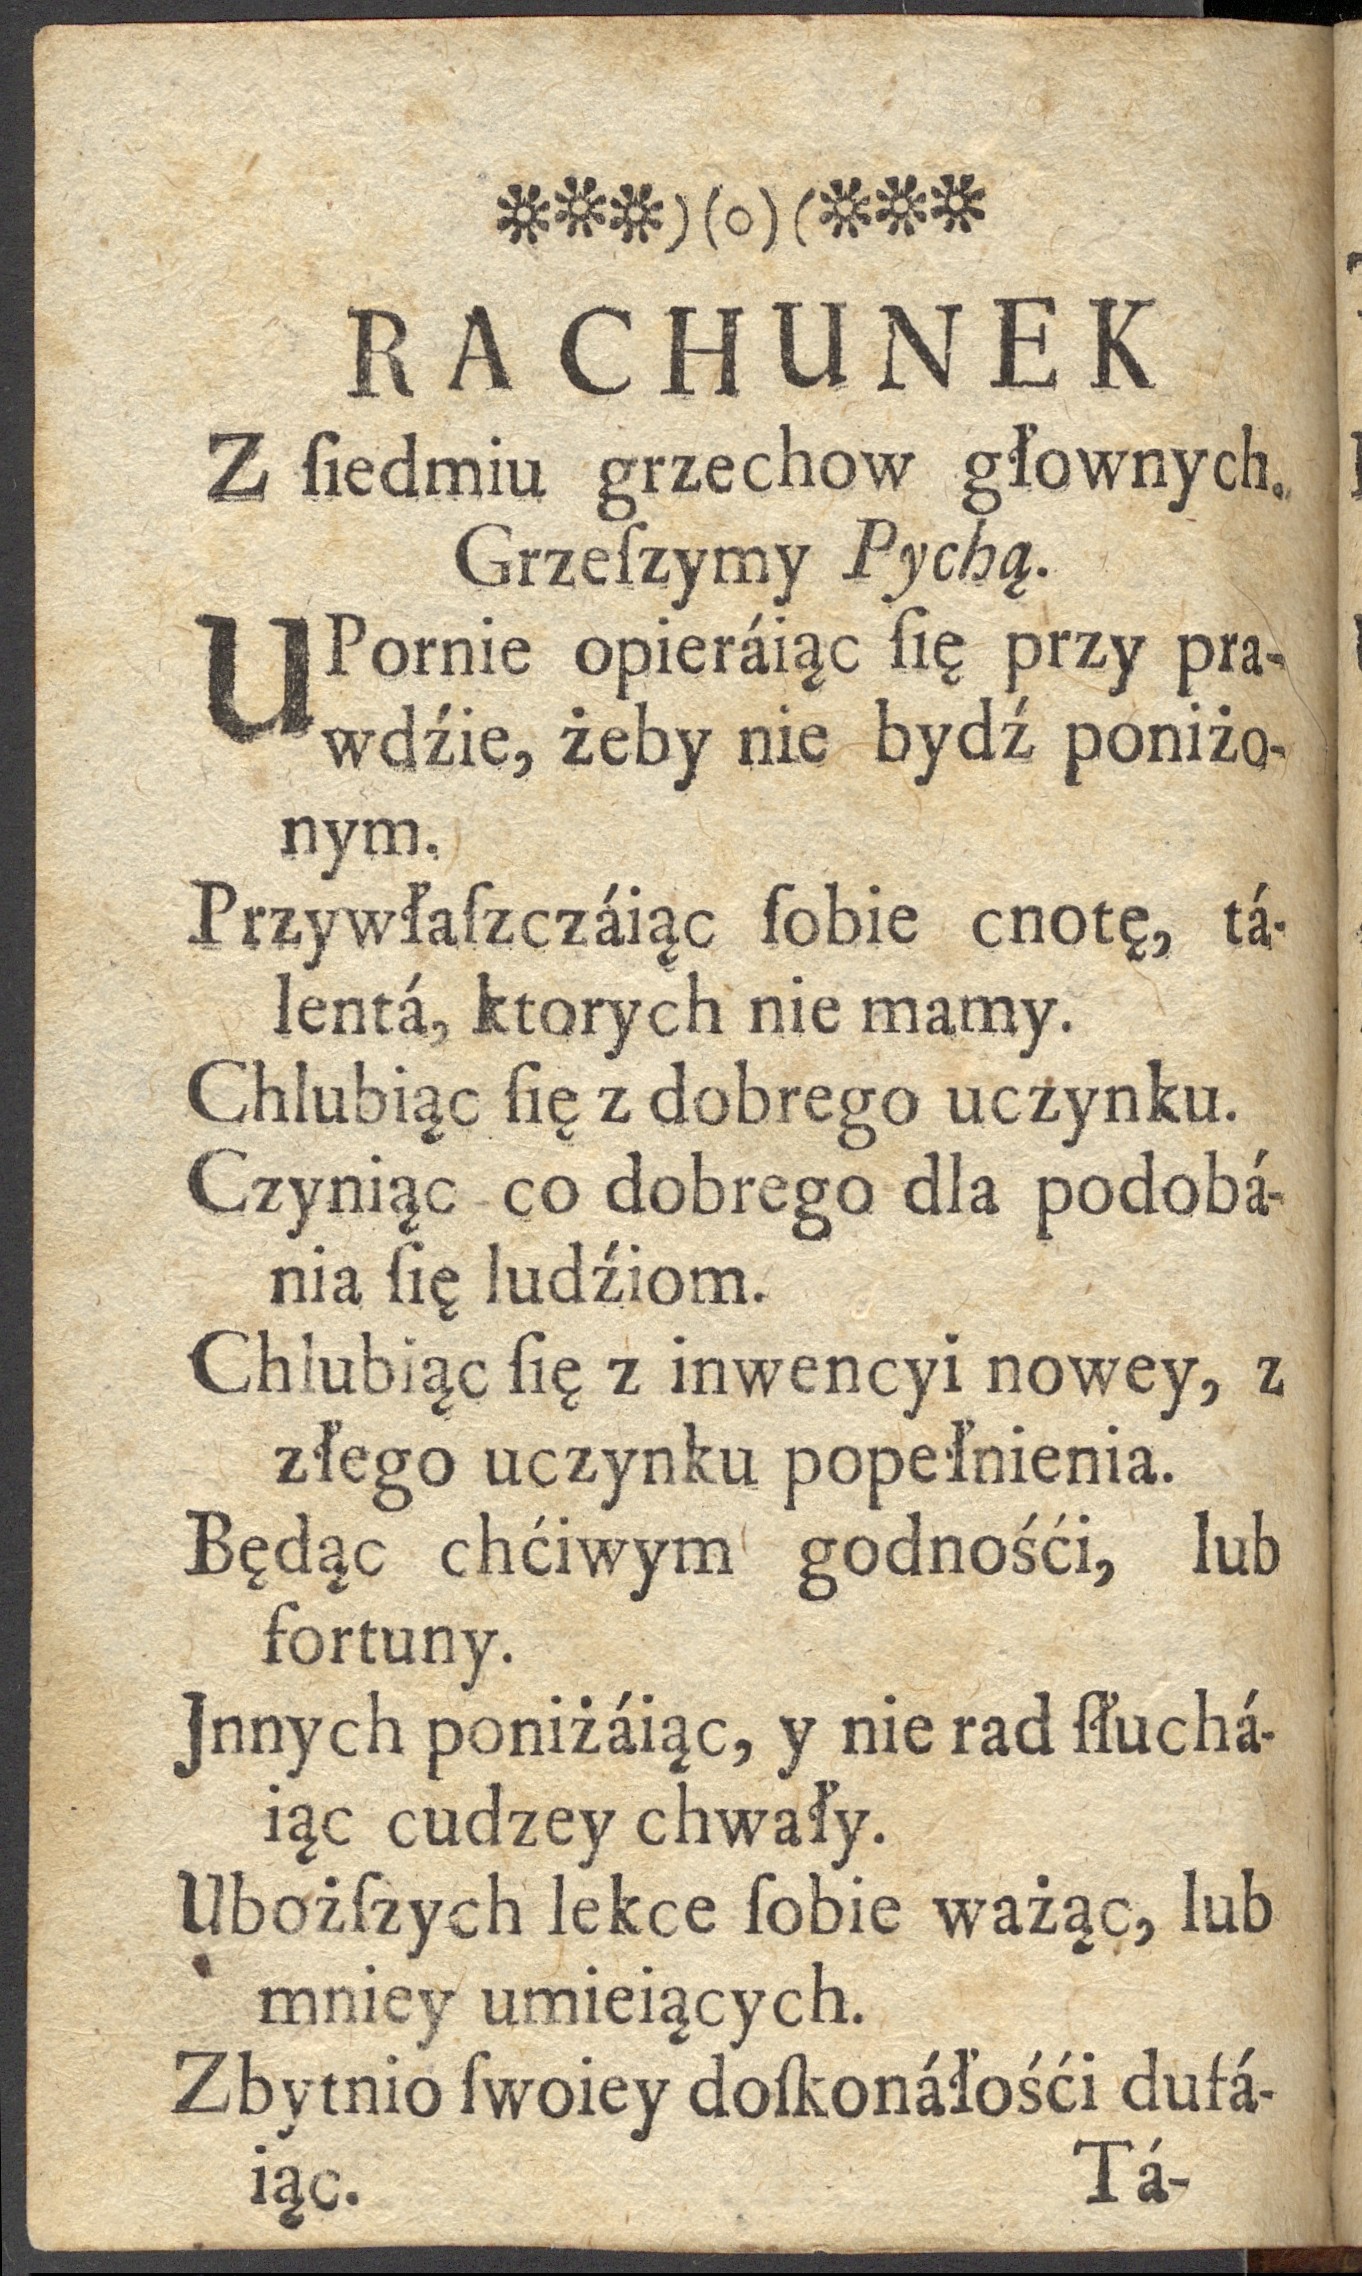 ***)(o)(***
RACHUNEK
Z ſiedmiu grzechow głownych.
Grzeſzymy Pychą.
UPornie opieráiąc ſię przy pra-
wdźie, żeby nie bydź poniżo-
nym.
Przywłaſzczáiąc ſobie cnotę, tá-
lentá, ktorych nie mamy.
Chlubiąc ſię z dobrego uczynku.
Czyniąc co dobrego dla podobá-
nia ſię ludźiom.
Chlubiąc ſię z inwencyi nowey, z
złego uczynku popełnienia.
Będąc chćiwym godnośći, lub
fortuny.
Jnnych poniżáiąc, y nie rad ſłuchá-
iąc cudzey chwały.
Ubożſzych lekce ſobie ważąc, lub
mniey umieiących.
Zbytnio ſwoiey doſkonáłośći dufá-
iąc.
Tá-